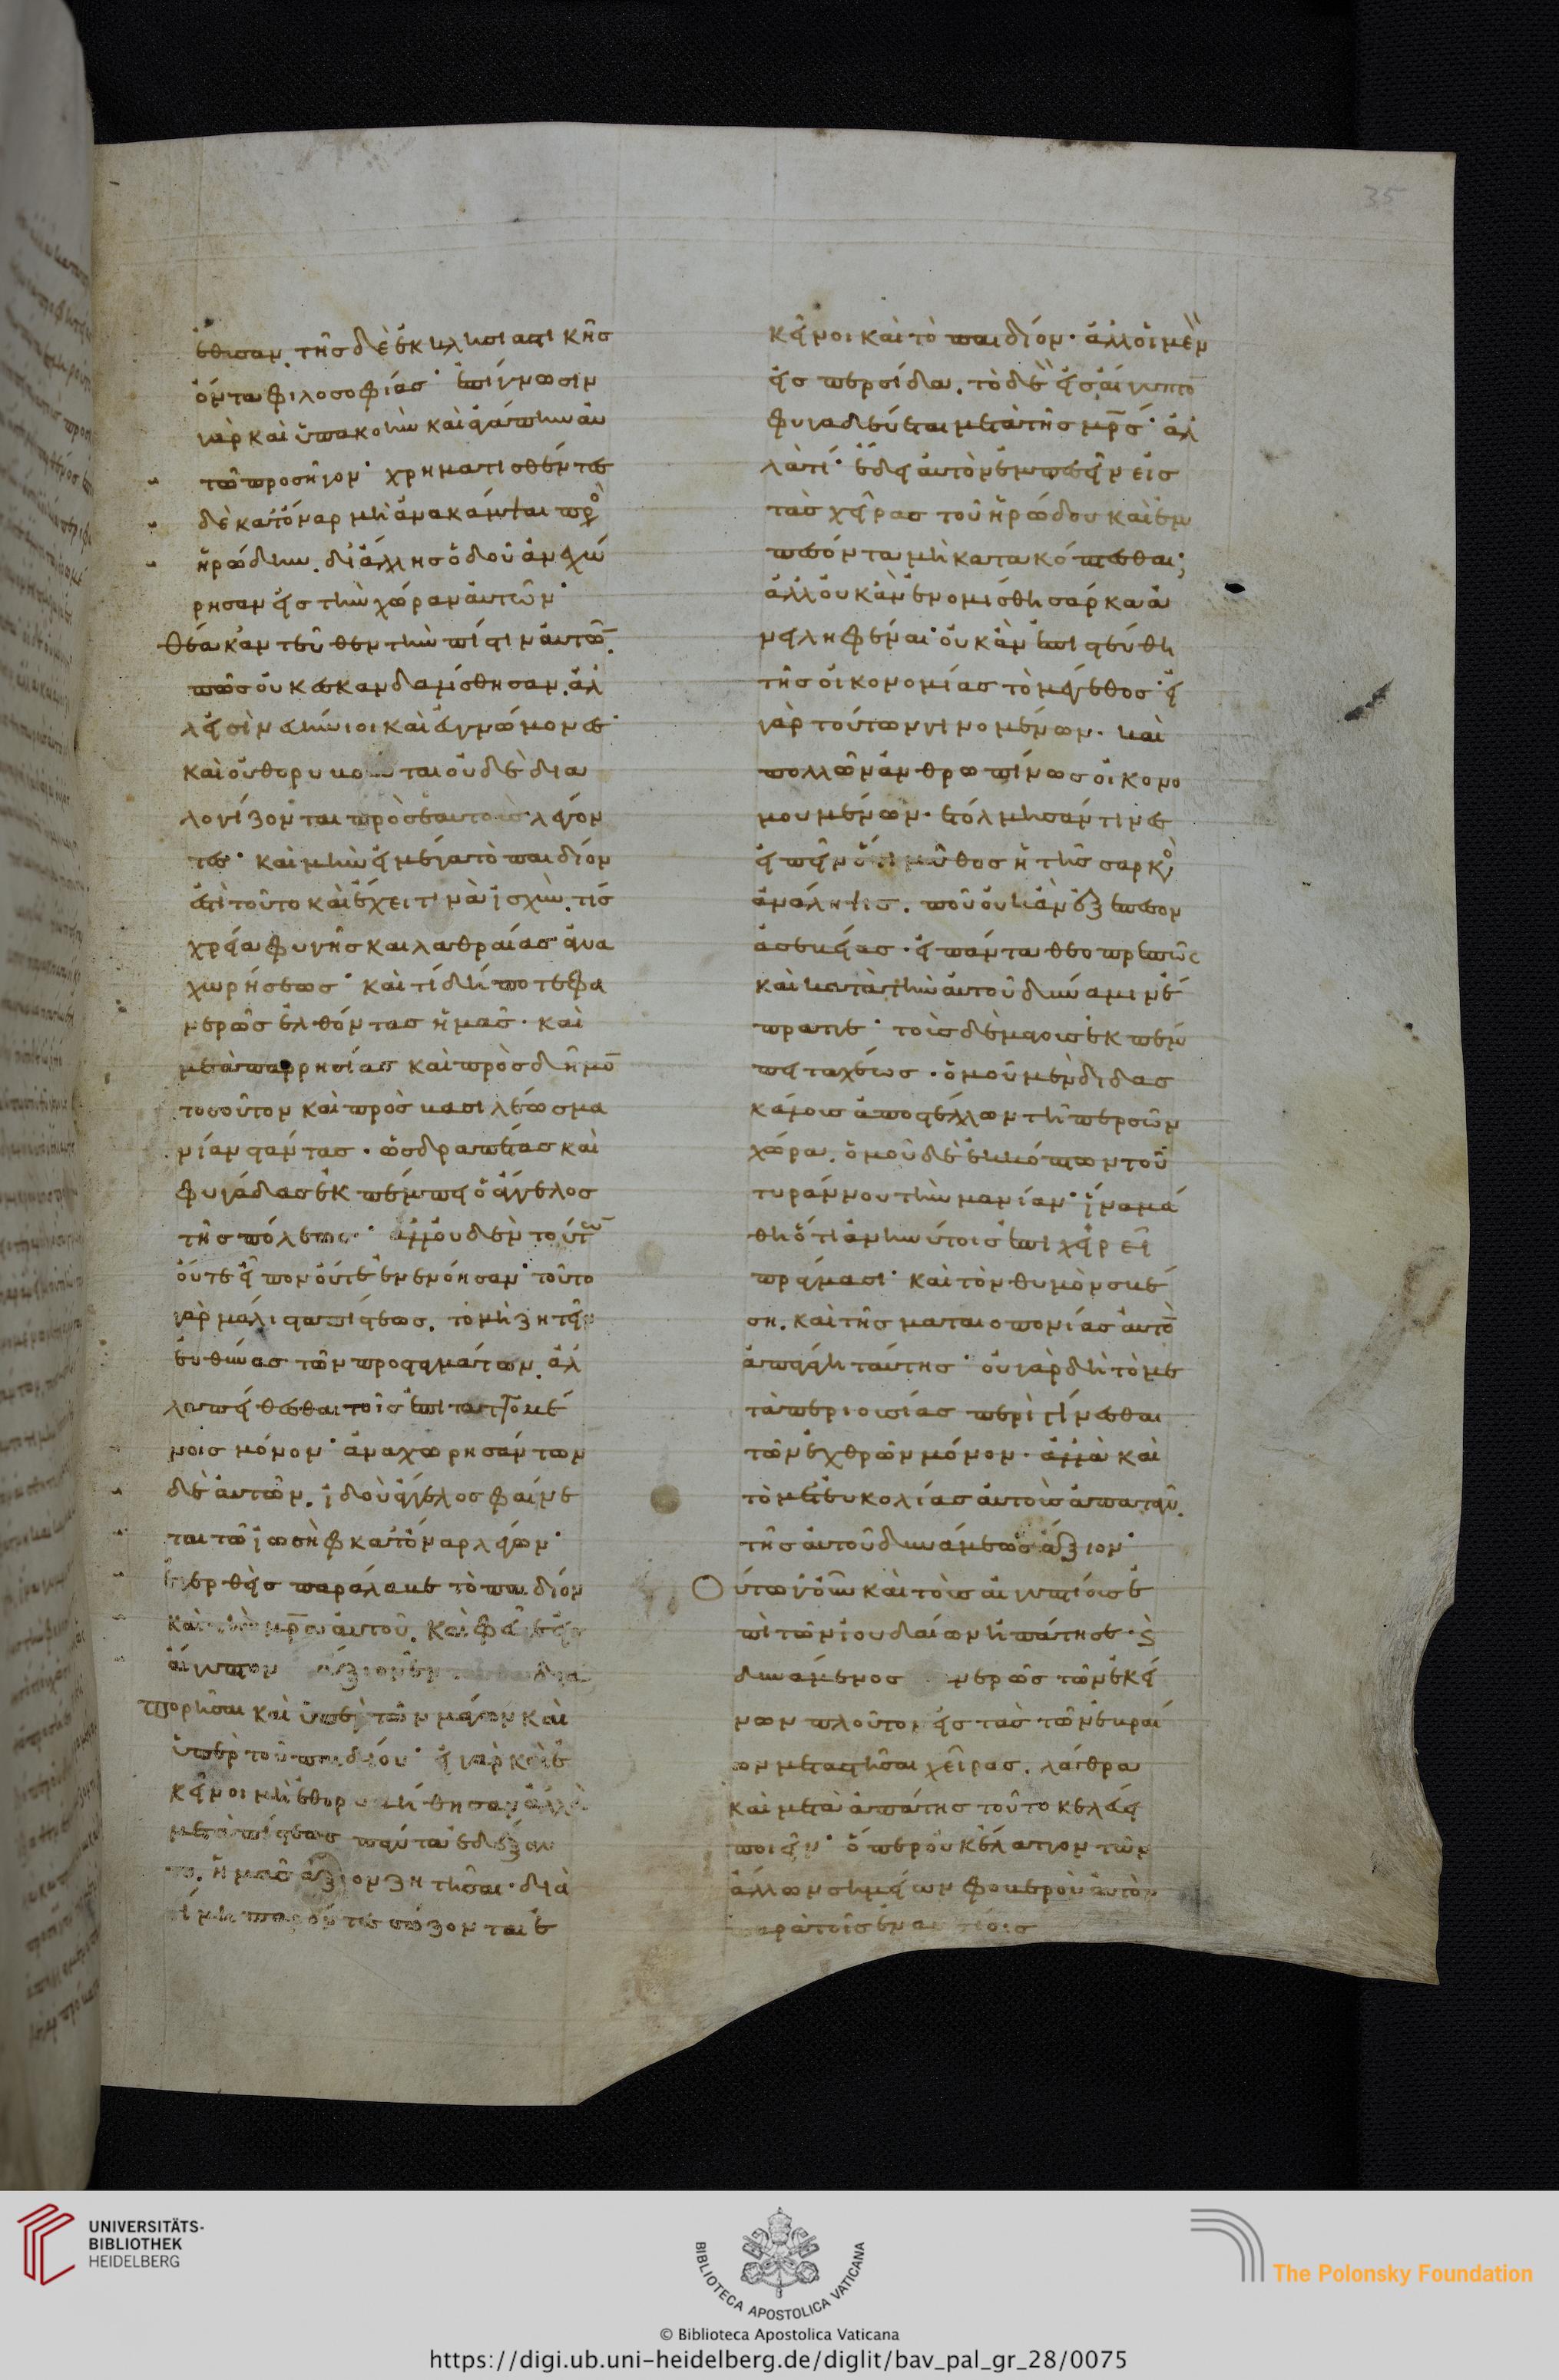 έθισαν. τῆς δὲ ἐκκλησιαστικῆς
ὄντα φιλοσοφίας· ἐπίγνωσιν
γὰρ καὶ ὑπακοὴν καὶ ἀγάπην αὐ
τῶ προσῆγον· χρηματισθέντες
δὲ κατόναρ μὴ ἀνακάμψαι πρὸ
ἡρώδην. δι ἄλλης ὁδοῦ ἀνεχώ
ρησαν εἰς τὴν χώραν αὐτῶν·
θέα κἀντεῦθεν τὴν πίστιν αὐτῶ̅.
πῶς οὐκ ἐσκανδαλίσθησαν. ἀλ
λεἰσὶν εὐήνιοι καὶ εὐγνώμονες·
καὶ οὐ θορυβοῦνται οὐδὲ δια
λογίζονται πρὸς ἑαυτοὺς λέγον
τες· καὶ μὴν εἰ μέγα τὸ παιδίον
ἐστὶ τοῦτο καὶ ἔχει τινὰ ἰσχὺν. τίς
χρεία φυγῆς και λαθραίας ἀνα
χωρήσεως· καὶ τί δήποτε φα
νερῶς ἐλθόντας ἡμᾶς· καὶ
μετὰ παρρησίας καὶ πρὸς δῆμο̅
τοσοῦτον καὶ πρὸς βασιλέως μα
νίαν στάντας· ὡς δραπέτας καὶ
φυγάδας ἐκπέμπει ὁ ἄγγελος
τῆς πόλεως· ἀλλ οὐδὲν τούτω̅
οὔτε εἶπον οὔτε ἐνενόησαν· τοῦτο
γὰρ μάλιστα πίστεως. τὸ μὴ ζητεῖν
εὐθύνας τῶν προσταγμάτων. ἀλ
λα πείθεσθαι τοῖς ἐπιταττομέ
νοις μόνον· ἀναχωρησάντων
δὲ αὐτῶν. ἰδοὺ ἄγγελος φαίνε
ται τῶ ἰωσὴφ κατόναρ λέγων·
ἐγερθεὶς παράλαβε τὸ παιδίον
καὶ τὴν μρ̅α αὐτοῦ. καὶ φεῦγε εἰς
αἴγυπτον ἄξιον ἐν δια
πορῆσαι καὶ ὑπὲρ τῶν μάγων καὶ
ὑπὲρ τοῦ παιδίου· εἰ γὰρ καὶ ἐ
κεῖνοι μὴ ἐθορυβήθησαν ἀλλὰ
μετὰ πίστεως πάντα ἐδέξαν
το. ἡμᾶς ἄξιον ζητῆσαι· διὰ
τί μὴ παρόντες σώζονται ἐ
κεῖνοι καὶ τὸ παιδίον· ἀλλ οἱ μὲν
εἰς περσίδα. τὸ δὲ εἰς αἴγυπτο̅
φυγαδεύεται μετὰ τῆς μρ̅ς· ἀλ
λὰ τί· ἔδει αὐτὸν ἐμπεσεῖν εἰς
τὰς χεῖρας τοῦ ἡρώδου καὶ ἐμ
πεσόντα μὴ κατακόπτεσθαι;
ἀλλ οὐκ ἂν ἐνομίσθη σάρκα ἀ
νειληφέναι· οὐκ ἂν ἐπιστεύθη
τῆς οἰκονομίας τὸ μέγεθος· εἰ
γὰρ τούτων γινομένων· καὶ
πολλῶν ἀνθρωπίνως οἰκονο
μουμένων· ἐτόλμησάν τινες
εἰπεῖν ὅτι μῦθος ἡ τῆς σαρκὸ
ἀνάληψις. ποῦ οὐκ ἂν ἐξέπεσον
ἀσεβείας· εἰ πάντα θεοπρεπῶς
καὶ κατὰ τὴν αὐτοῦ δύναμιν ἔ
πραττε· τοὺς δὲ μάγους ἐκπέμ
πει ταχέως· ὁμοῦ μὲν διδασ
κάλους ἀποστέλλων τῆ περσῶν
χώρα. ὁμοῦ δὲ ἐκκόπτων τοῦ
τυράννου τὴν μανίαν· ἵνα μά
θη ὅτι ἀνηνύτοις ἐπιχειρεῖ
πράγμασι· καὶ τὸν θυμὸν σβέ
ση. καὶ τῆς ματαιοπονίας αὐτὸ̅
ἀποστήση ταύτης· οὐ γὰρ δὴ τὸ με
τὰ περιουσίας περιγίνεσθαι
τῶν ἐχθρῶν μόνον· ἀλλὰ καὶ
τὸ μετευκολίας αὐτοὺς ἀπατᾶν.
τῆς αὐτοῦ δυνάμεως ἄξιον·
Οὕτω γοῦν καὶ τοὺς αἰγυπτίους ἐ
πὶ τῶν ἰουδαίων ἠπάτησε· ϗ̀
δυνάμενος φανερῶς τῶν ἐκεί
νων πλοῦτον εἰς τὰς τῶν ἑβραί
ων μεταστῆσαι χεῖρας. λάθρα
καὶ μετὰ ἀπάτης τοῦτο κελεύει
ποιεῖν· ὅπερ οὐκ ἔλαττον τῶν
ἄλλων σημείων φοβερὸν αὐτὸν
παρὰ τοῖς ἐναντίοις
35
UNIVERSITÄTS-
BIBLIOTHEK
HEIDELBERG
BIBLIOTECA APOSTOLICA VATICANA
The Polonsky Foundation
© Biblioteca Apostolica Vaticana
https://digi.ub.uni-heidelberg.de/diglit/bav_pal_gr_28/0075